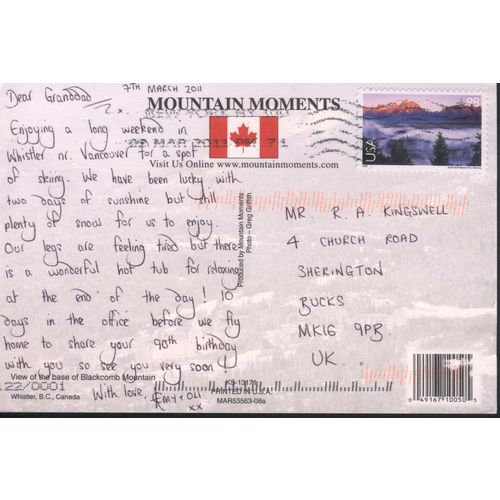 7TH MARCH 2011
Dear Granddad,
MOUNTAIN MOMENTS
98
USA
Visit Us Online www.mountainmoments.com
Enjoying a long weekend in
Whistler nr. Vancouver for a spot
of skiing. We have been lucky with
two days of sunshine but still
plenty of snow for us to enjoy.
Our legs are feeling tired but there
is a wonderful hot tub for relaxing
at the end of the day! 10
days in the office before we fly
home to share your 90th birthday
with you so see you very soon!
With love,
xx
Produced by Mountain Moments
Photo - Greg Griffith
MR. R. A. KINGSWELL
4 CHURCH ROAD
SHERINGTON
BUCKS
MK16 9PB.
UK.
View of the base of Blackcomb Mountain
122/0001
Whistler, B.C., Canada
PRINTED IN U.S.A.
MAR53563-08a
0 49167 10050 5